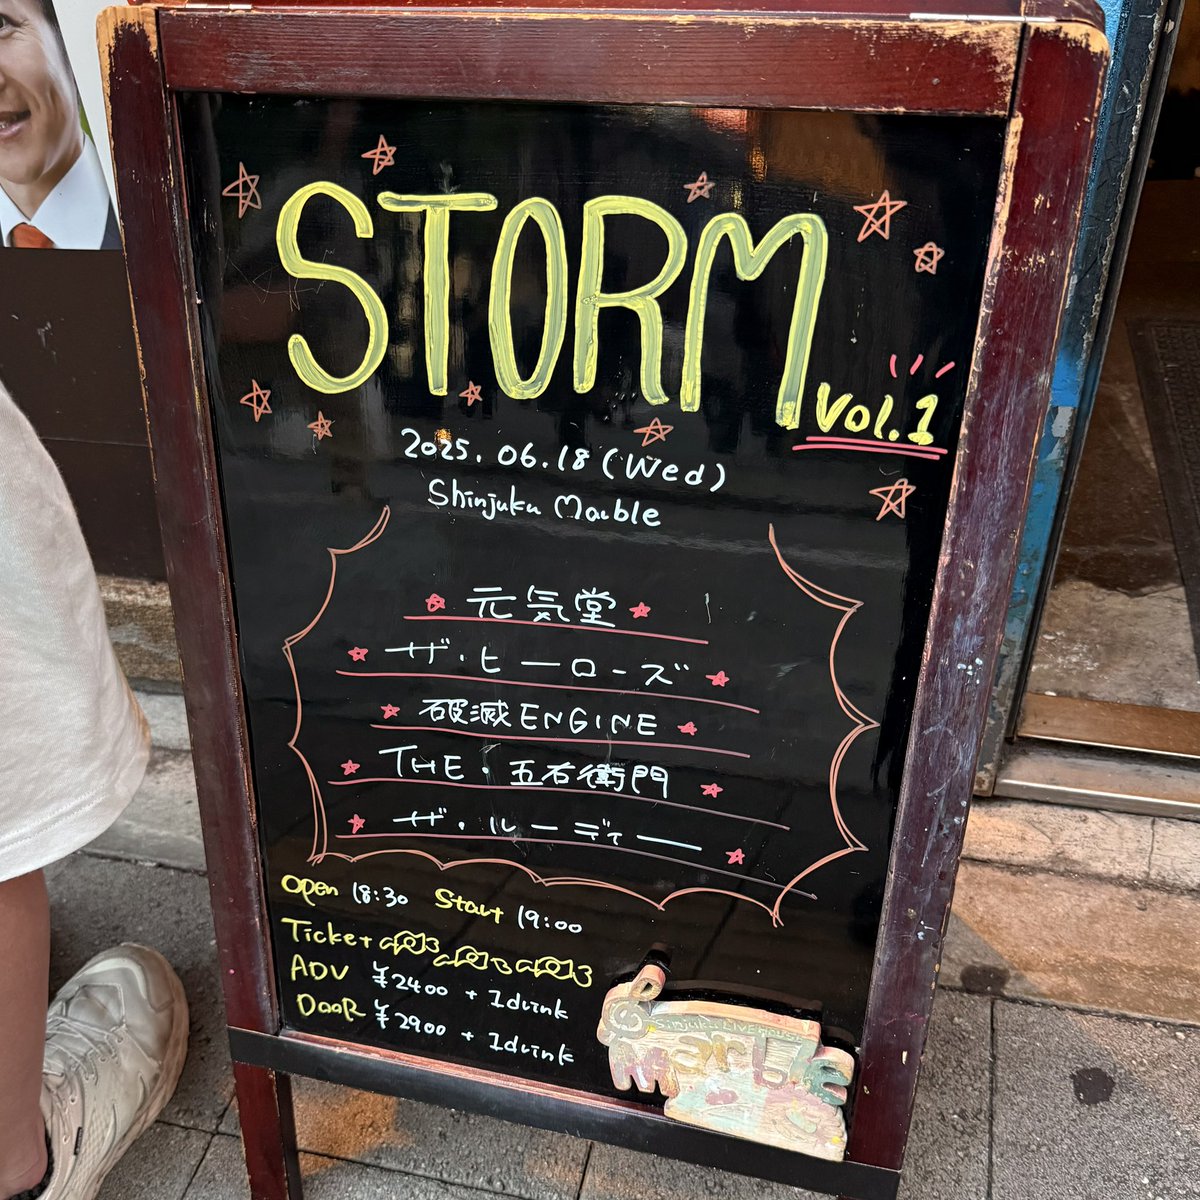 STORM
Vol.1
2025.06.18 (Wed)
Shinjuku Marble
元気堂
ザ・ヒーローズ
破滅ENGINE
THE・五右衛門
ザ・ルーディー
Open 18:30 Start 19:00
Ticket
ADV ¥2400 + 1drink
DooR ¥2900 + 1drink
Sinjuku LIVE House
Marble